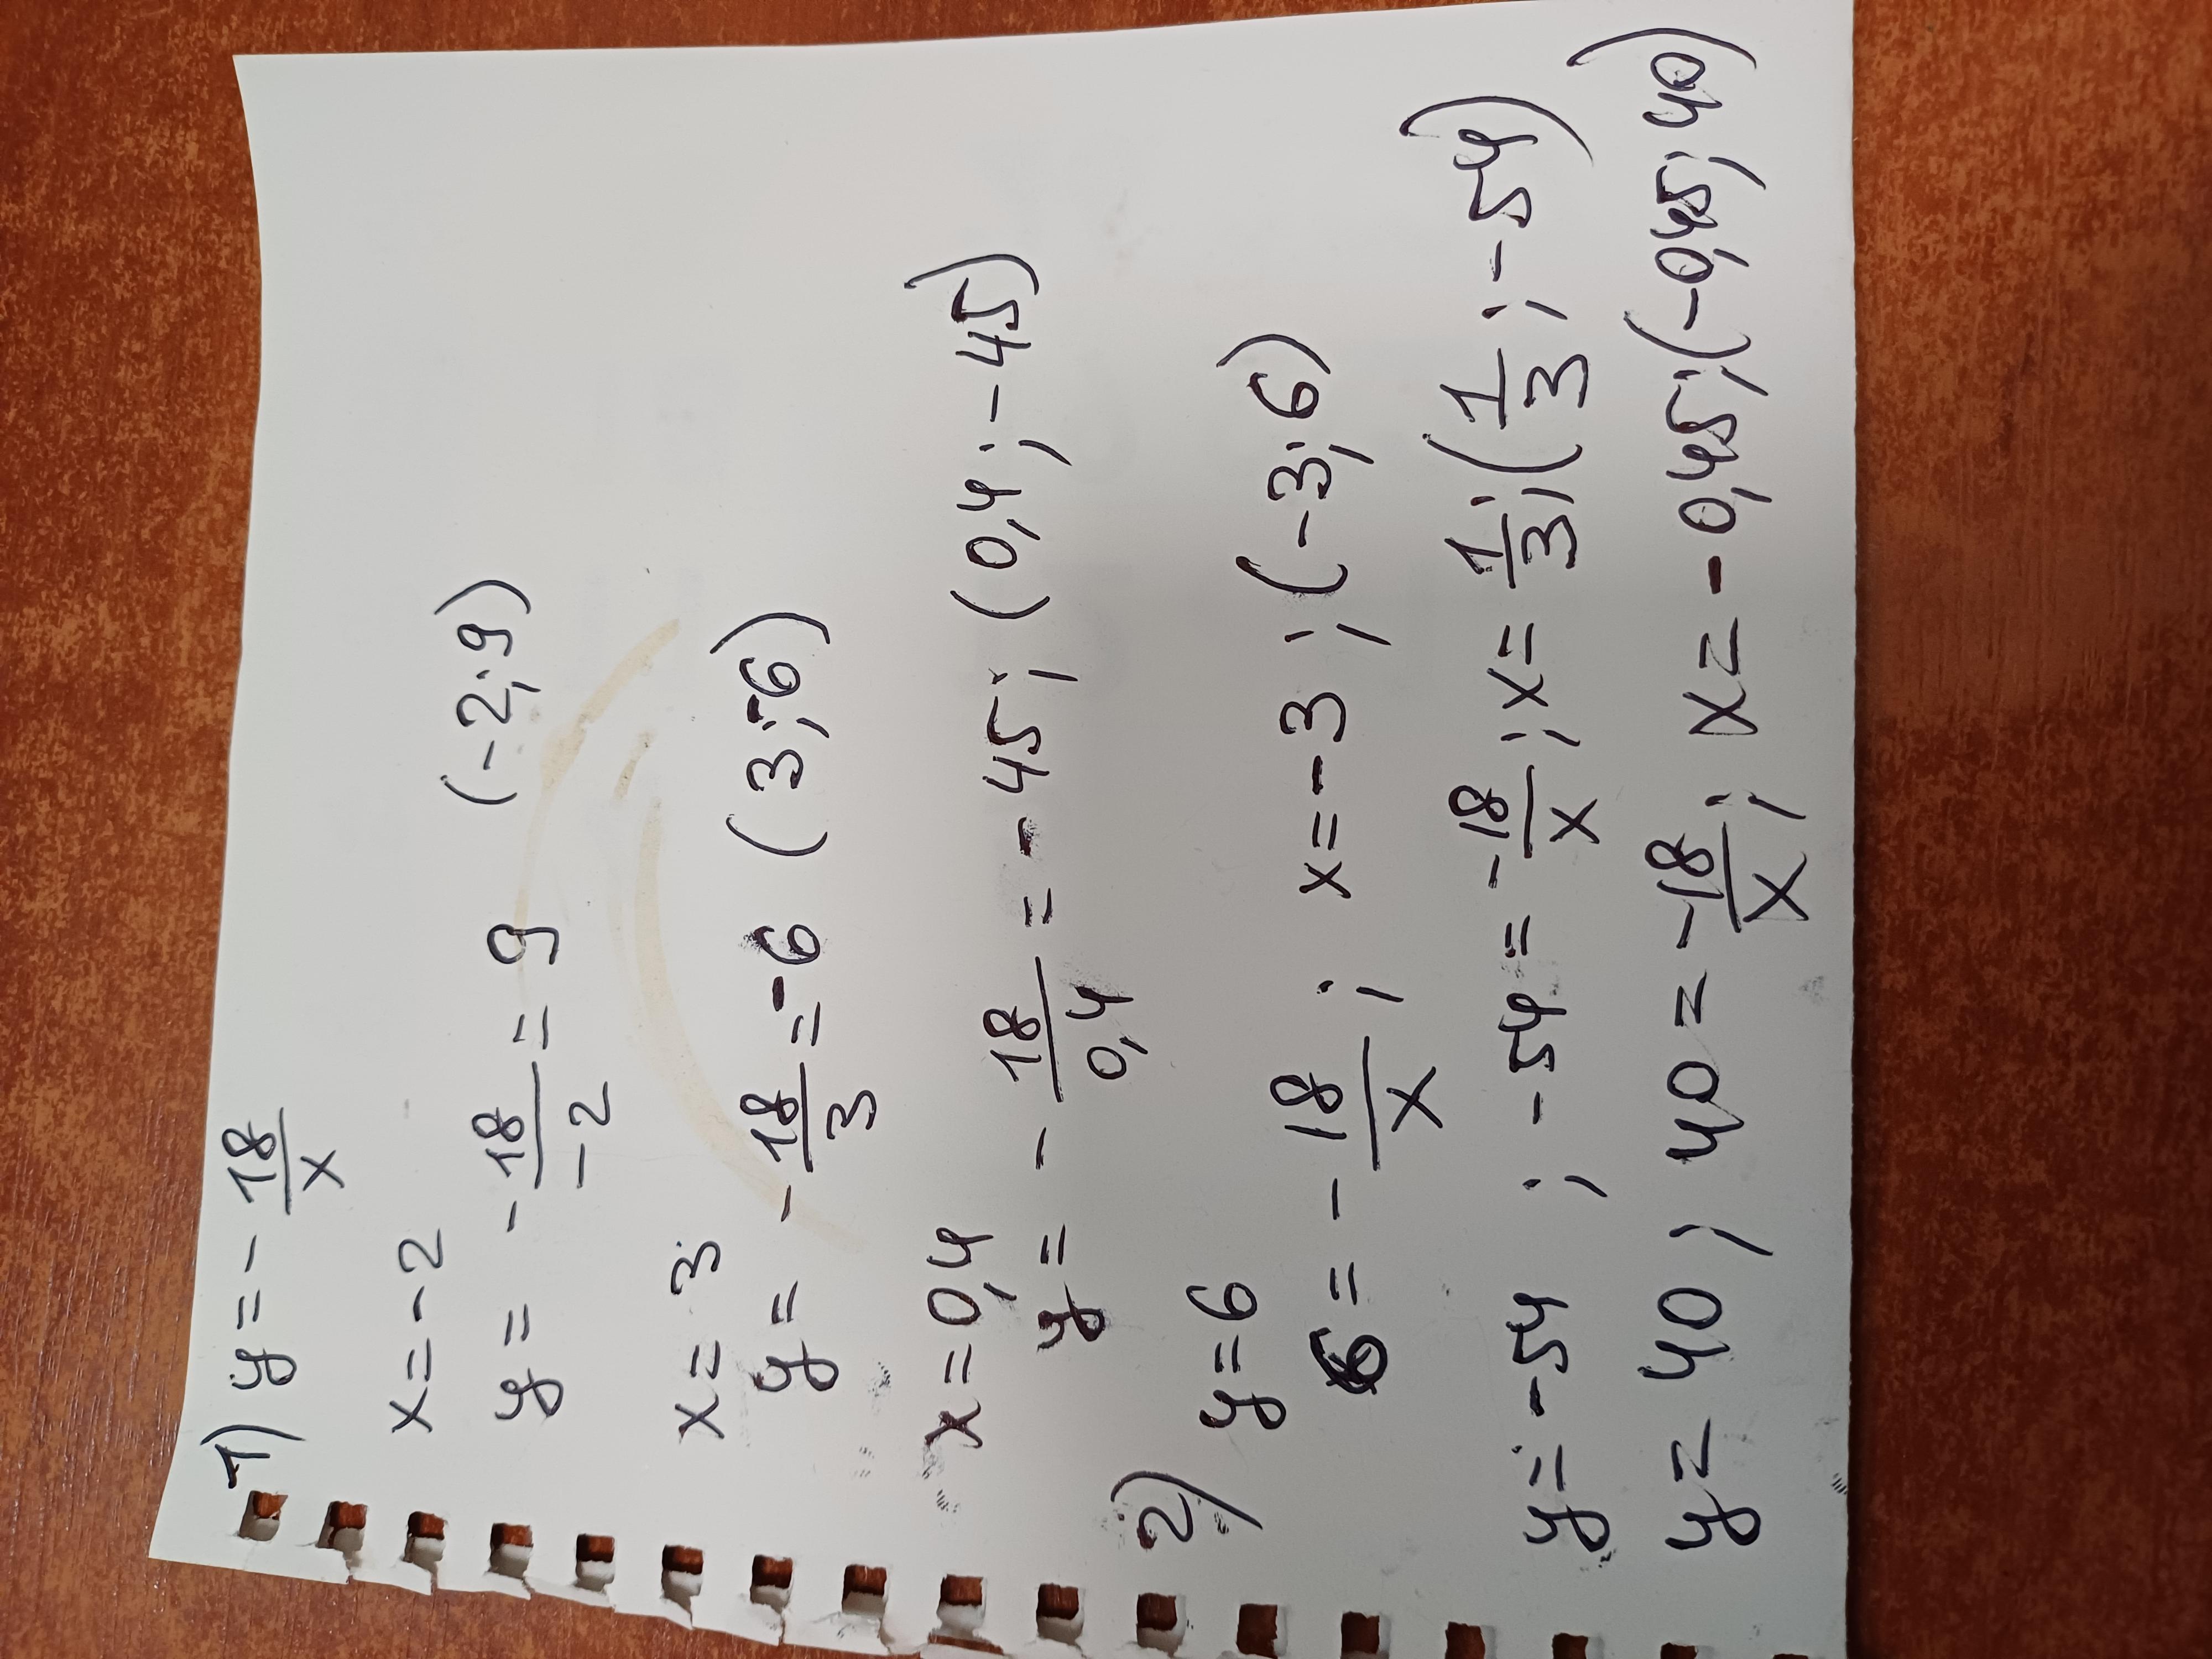 1) y = - 18/x
x = -2
y = - 18/-2 = 9 (-2; 9)
x = 3
y = - 18/3 = -6 (3; -6)
x = 0,4
y = - 18/0,4 = - 45; (0,4; -45)
2) y = 6
6 = - 18/x; x = -3; (-3; 6)
y = -54; -54 = - 18/x; x = 1/3; (1/3; -54)
y = 40; 40 = - 18/x; x = -0,45; (-0,45; 40)